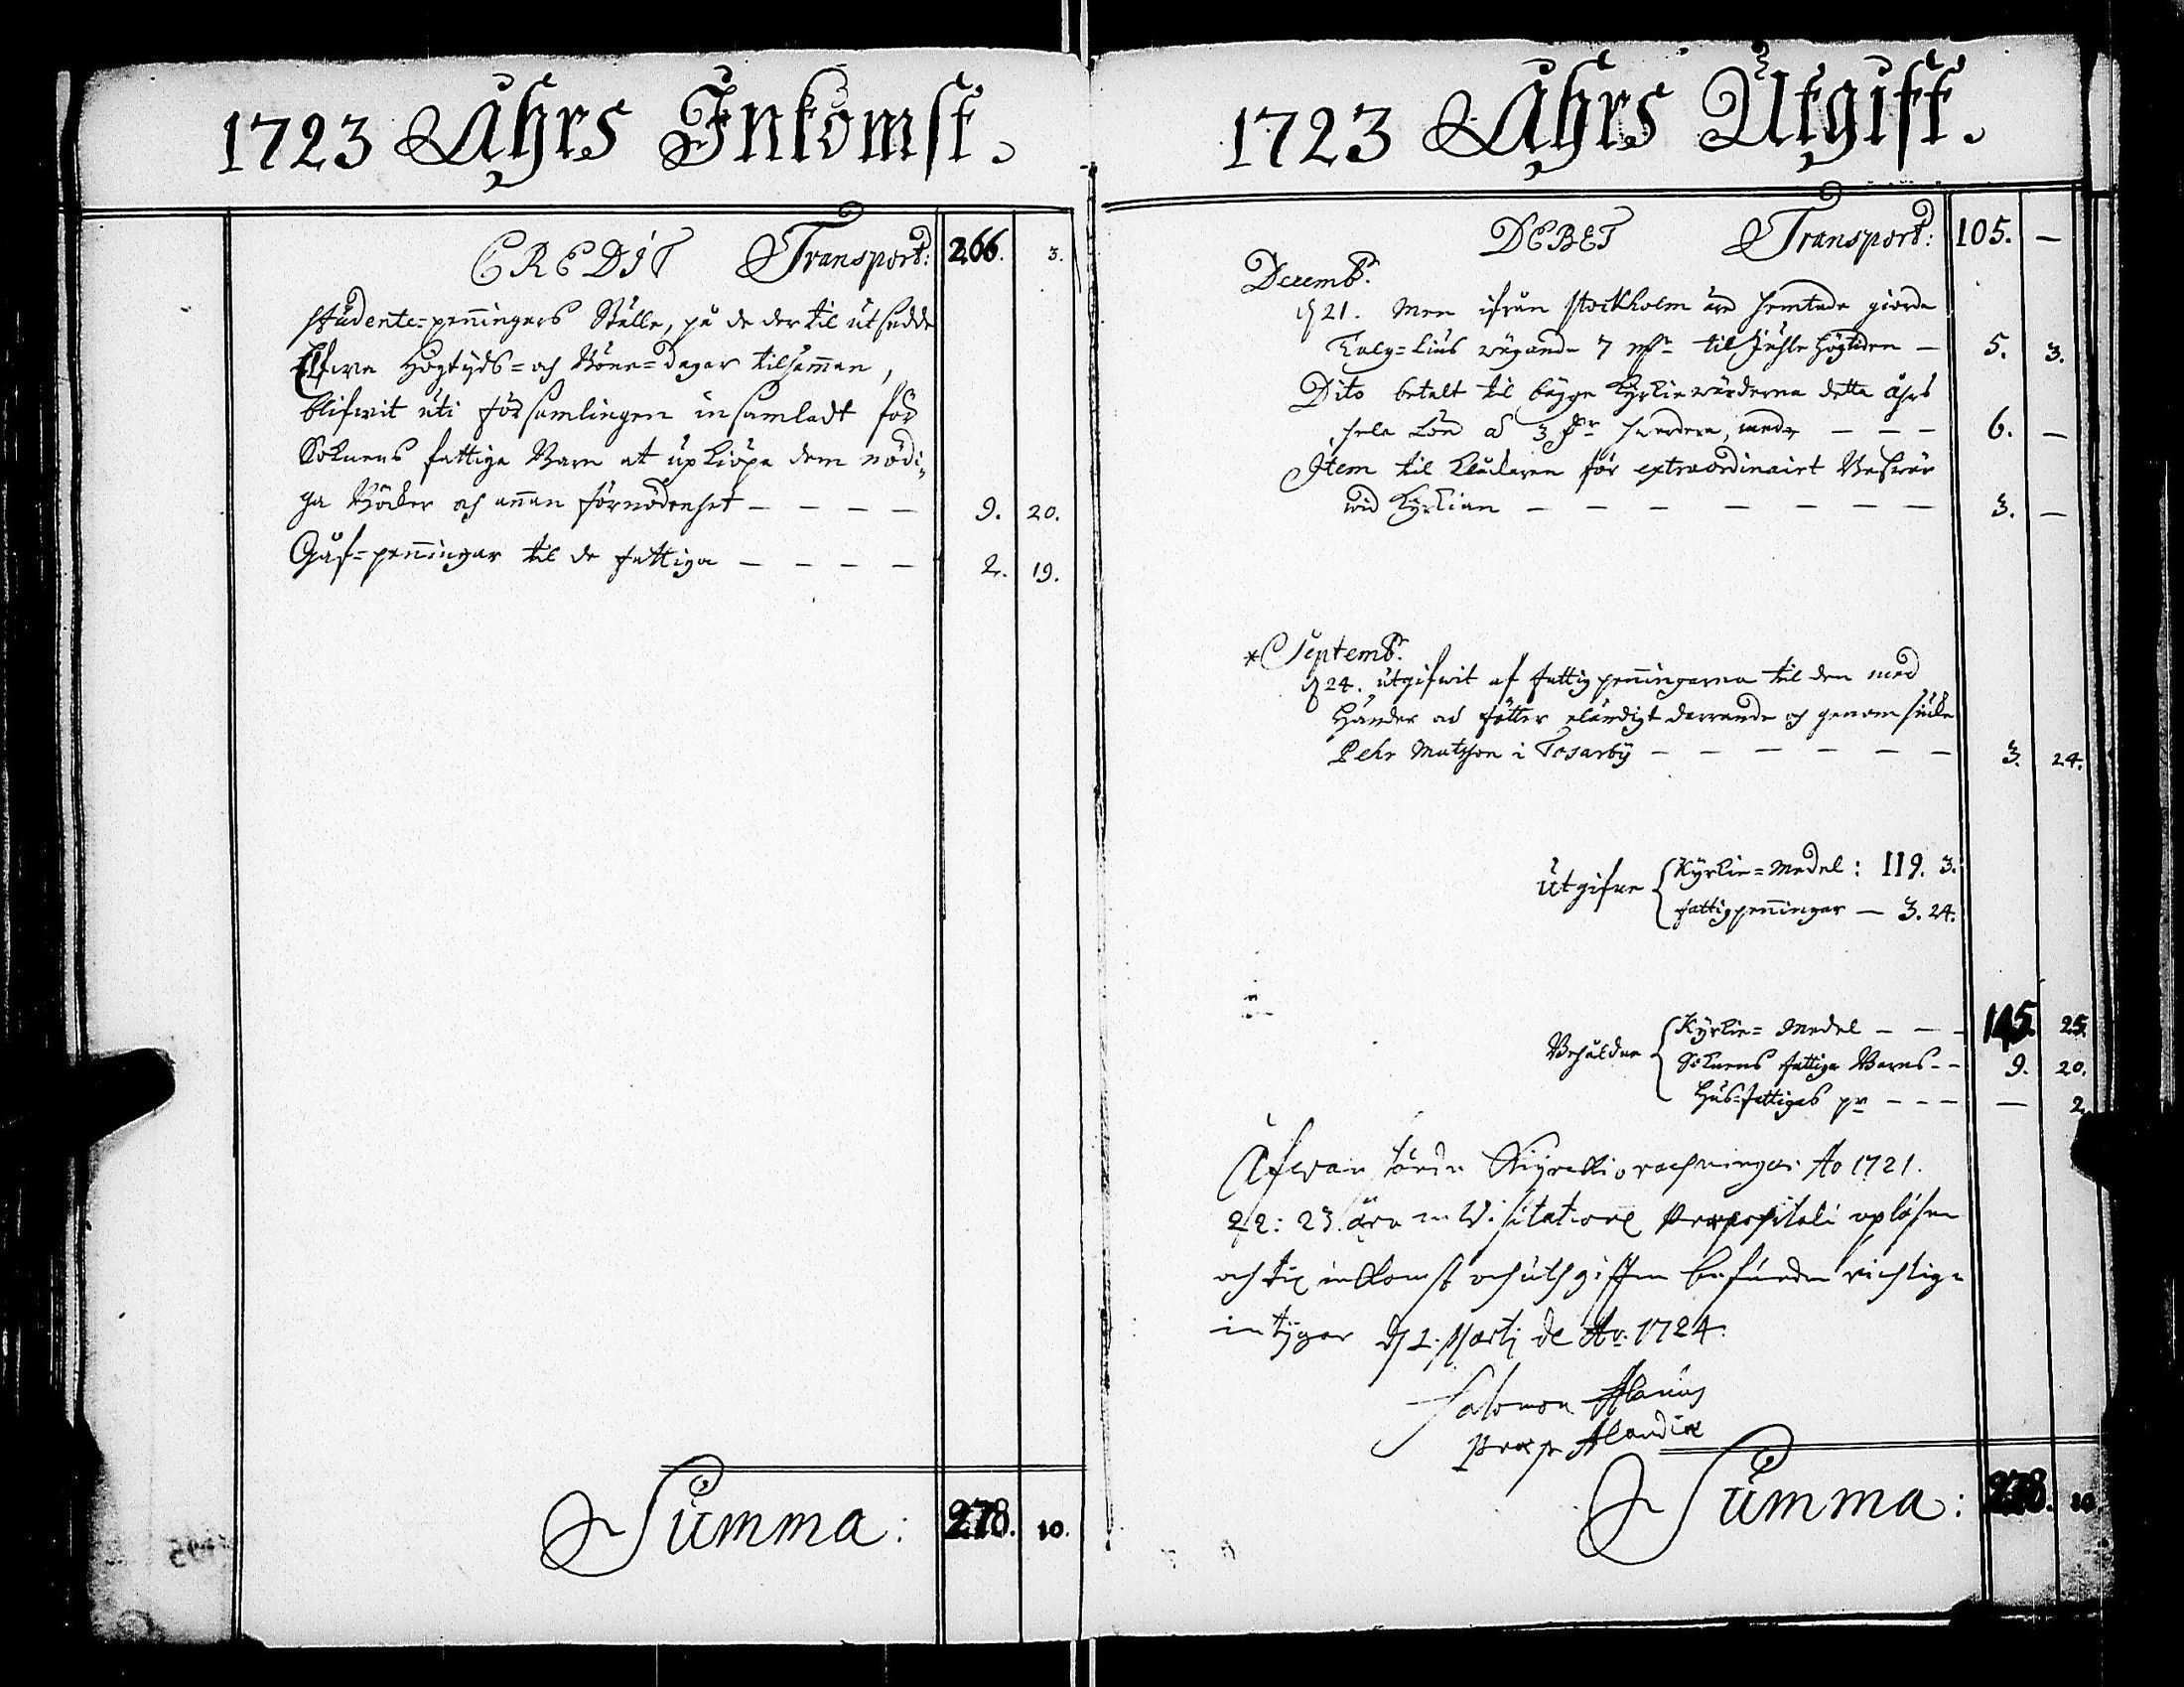 1723 Åhrs Inkomst.
CREDIT Transport: 266. 3.
studente-penningars Ställe, på de der til utsedde
Elfwa Högtyds- och Böne-dagar tilsamman,
blifwit uti församlingen insamladt för
Soknens fattiga Barn at upkiöpa dem nödi-
ga Böcker och annan förnödenhet — — — — 9. 20.
Gåf-penningar til de fattiga — — — — 2. 19.
Summa: 278. 10.
1723 Åhrs Utgift.
DEBET Transport: 105. —
Decemb.
d 21. Men ifrån Stockholm hemtade giorde
Talg-lius wägande 7 til Juhle högtiden — 5. 3.
Dito betalt til bägge Kyrkiewärderna detta åhrs
hela Lön a 3 hwardera, — — — 6. —
Item til Klåckaren för extraordinairt Beswär
wid Kyrkian — — — — — — — 3. —
* Septemb.
d 24. utgifwit af fattigpenningarna til den med
Händer och fötter eländigt darrande och genomsiuke
Pehr Matsson i Tosarby — — — — — — 3. 24.
Utgifne Kyrkie-Medel: 119. 3.
fattigpenningar — 3. 24.
Behåldne Kyrkie-Medel — — — 145. 25.
Soknens fattige Barns — — 9. 20.
Hus-fattigas pr — — — — 2.
Åfwan Kyrckio räckningar Ao 1721.
22: 23. äro in Visitatione Præpositali
och til inkomst och uthgifften befundne richtige
intygar d 2. Martj de Ao. 1724.
Salomon
Præp Alandiæ
Summa: 278. 10.